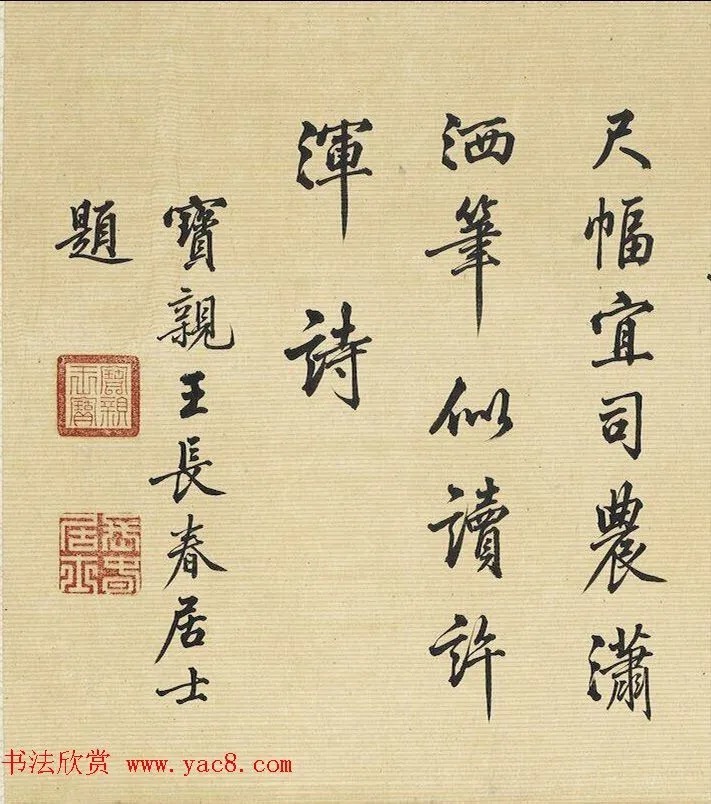 尺幅宜司農瀟
洒筆似讀許
渾詩
寶親王長春居士
題
寶親王寶
長春居士
书法欣赏 www.yac8.com